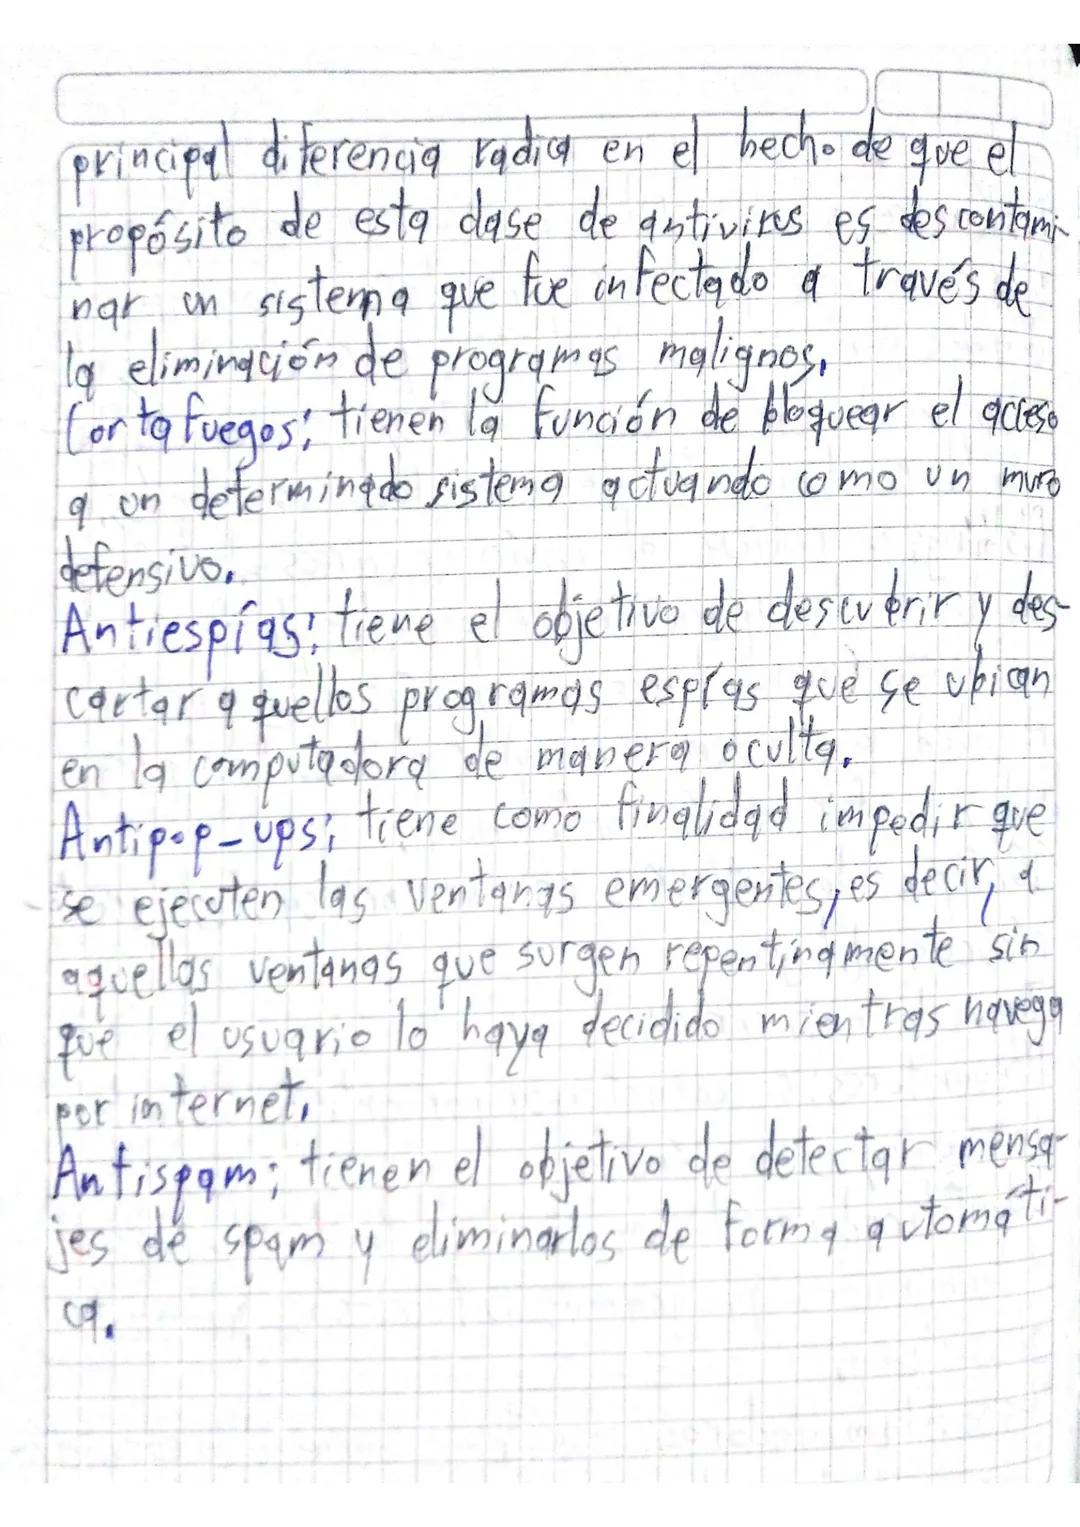 principal diferencia radica en el hecho de que el
propósito de esta clase de antivirus es descontami-
nar un sistema que fue infectado a través de
la eliminación de programas malignos.
Cortafuegos: tienen la función de bloquear el acceso
a un determinado sistema actuando como un muro
defensivo.
Antiespías: tiene el objetivo de descubrir y des-
cartar aquellos programas espías que se ubican
en la computadora de manera oculta.
Antipop-ups: tiene como finalidad impedir que
se ejecuten las ventanas emergentes, es decir, a
aquellas ventanas que surgen repentinamente sin
que el usuario lo haya decidido mientras navega
por internet.
Antispam: tienen el objetivo de detectar mensa-
jes de spam y eliminarlos de forma automáti-
ca.